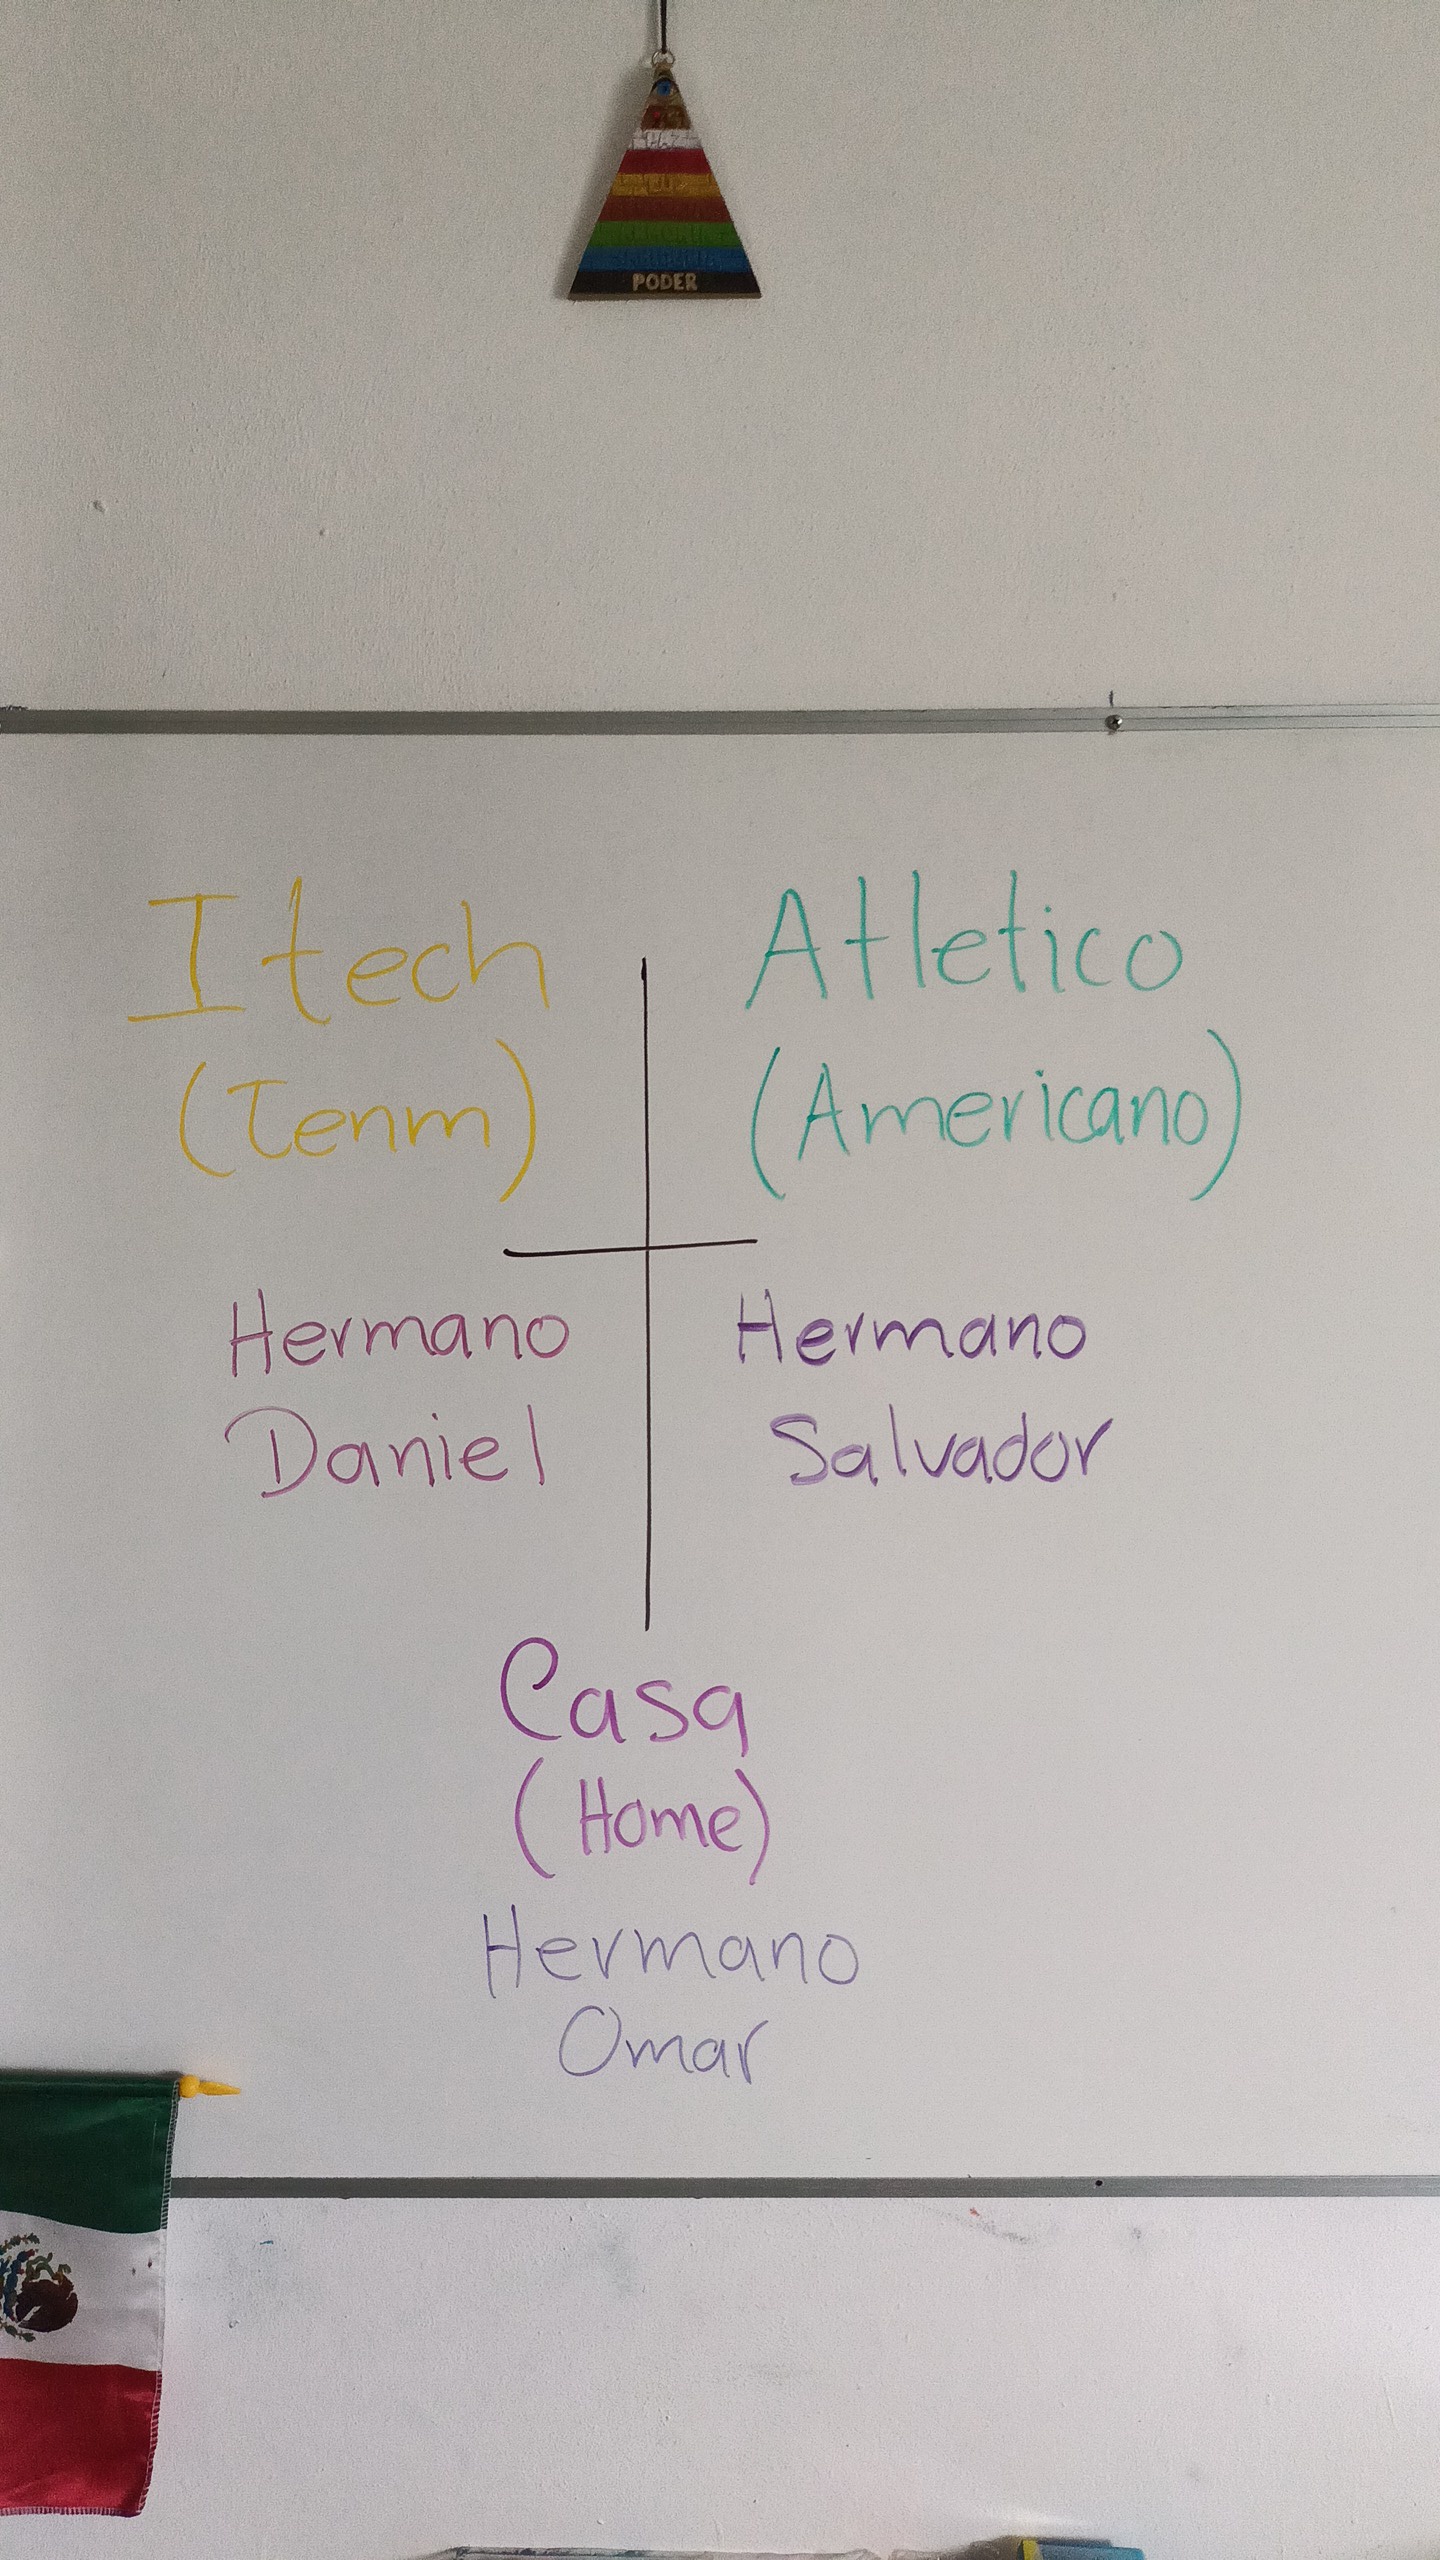 PODER
Itech
(Tenm)
Atletico
(Americano)
Hermano
Daniel
Hermano
Salvador
Casa
(Home)
Hermano
Omar